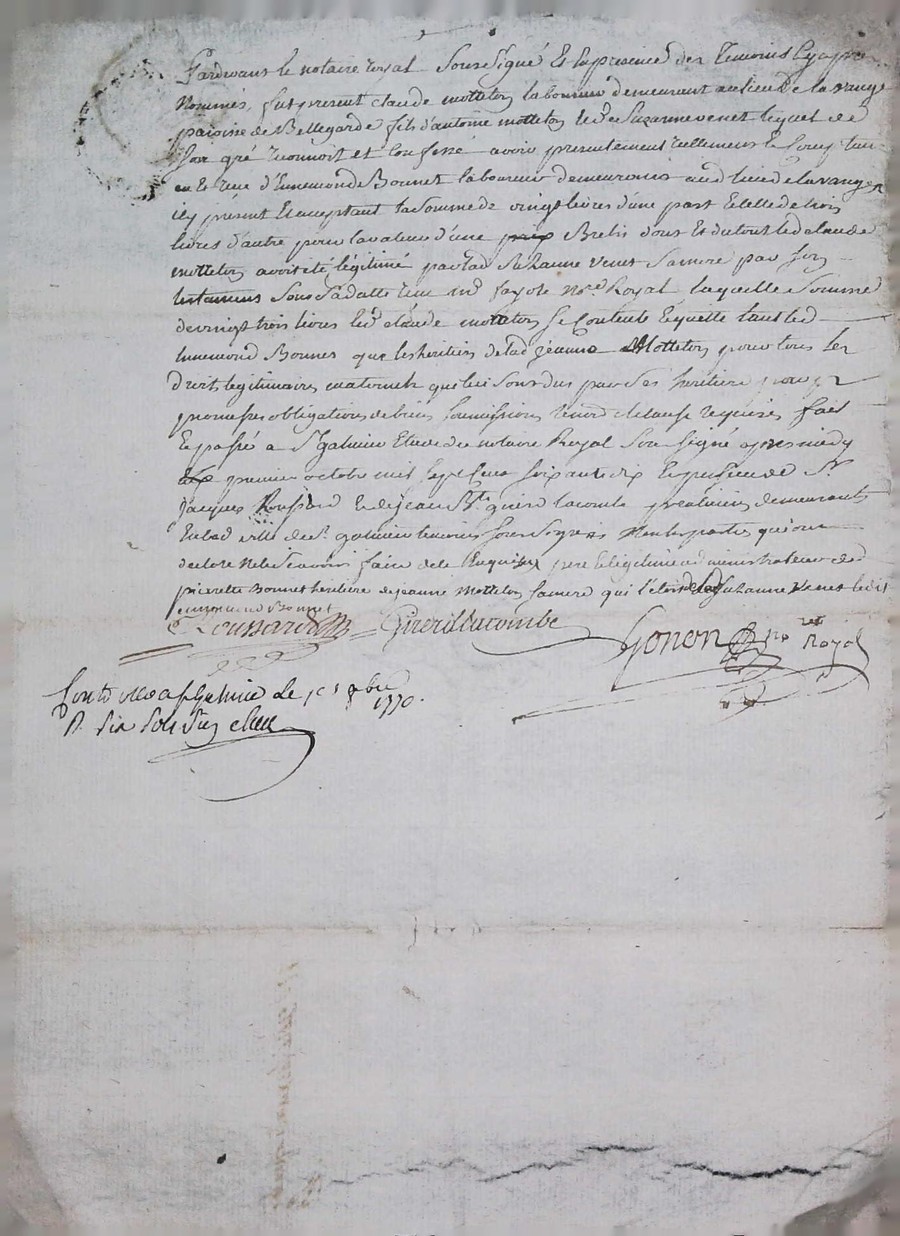 Pardevant le notaire royal Soussigné Et En presence des Temoins Cy apres
Nommés, fut present claude motteton laboureur demeurant au lieu de la vange
paroisse de Bellegarde fils d'antoine motteton Et de Suzanne venet lequel de
Son gré reconnoit et Confesse avoir presentement reellement le Comptant
eu Et receu d'Ennemond Bonnet laboureur demeurant aud lieu de la vange
icy présent Et acceptant la Somme de vingt livres d'une part Et celle de trois
livres d'autre pour la valeur d'une Brebis dont Et du tout led claude
motteton avoit été légitimé par lad Suzanne Venet Sa mere par Son
testament Sous Sa datte receu Me fayole Nre Royal laquelle Somme
de vingt trois livres led claude motteton Se Contente Et quitte tant led
Ennemond Bonnet que les heritiers de lad jeanne Motteton pour tous les
Droits legitimaires maternels qui lui Sont dus par Ses heritiers
promesses obligations de biens Soumissions renond Et clauses requises fait
Et passé a St galmier Etude du notaire Royal Soussigné apres midy
le premier octobre mil Sept Cent Soixante dix En presence de Sr
jacques Roussard Et de jean Bte girerd lacombe praticiens demeurants
En lad ville de St galmier temoins Soussignés Non les parties qui ont
declaré Ne le Scavoir faire de ce Enquises pere Et legitime administrateur de
pierrette Bonnet heritiere de jeanne Motteton Sa mere qui l'etoit de lad Suzanne Venet led
ennemond Bonnet
Roussard Girerd Lacombe Gonon nre Royal
Contrôlé a St Galmier le 1er 8bre 1770.
R. Six Sols Six